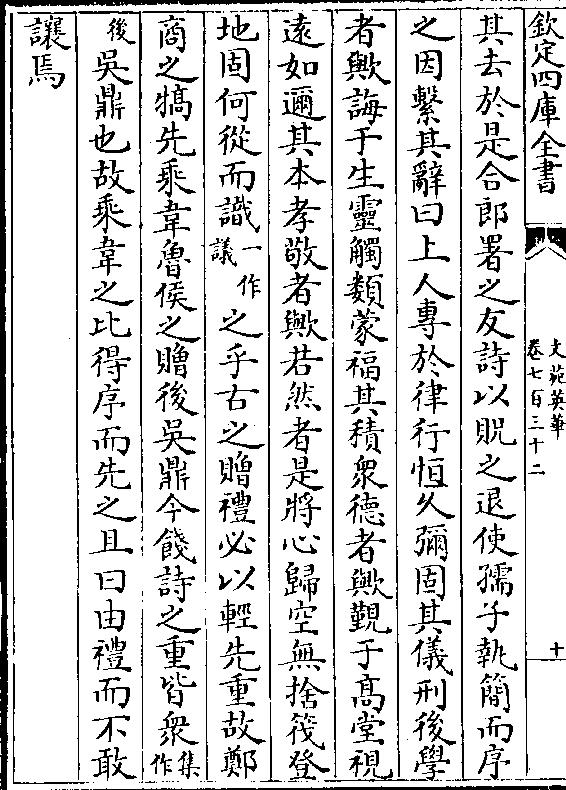 欽定四庫全書
文苑英華
卷七百三十二
十
其去於是合郎署之友詩以貺之退使孺子執簡而序
之因繫其辭曰上人專於律行恒久彌固其儀刑後學
者歟誨于生靈觸類蒙福其積衆德者歟覲于髙堂視
遠如邇其本孝敬者歟若然者是將心歸空無捨筏登
地固何從而識一作議之乎古之贈禮必以輕先重故鄭
商之犒先乘韋魯侯之贈後吳鼎今餞詩之重皆衆集作
後吳鼎也故乘韋之比得序而先之且曰由禮而不敢
讓焉